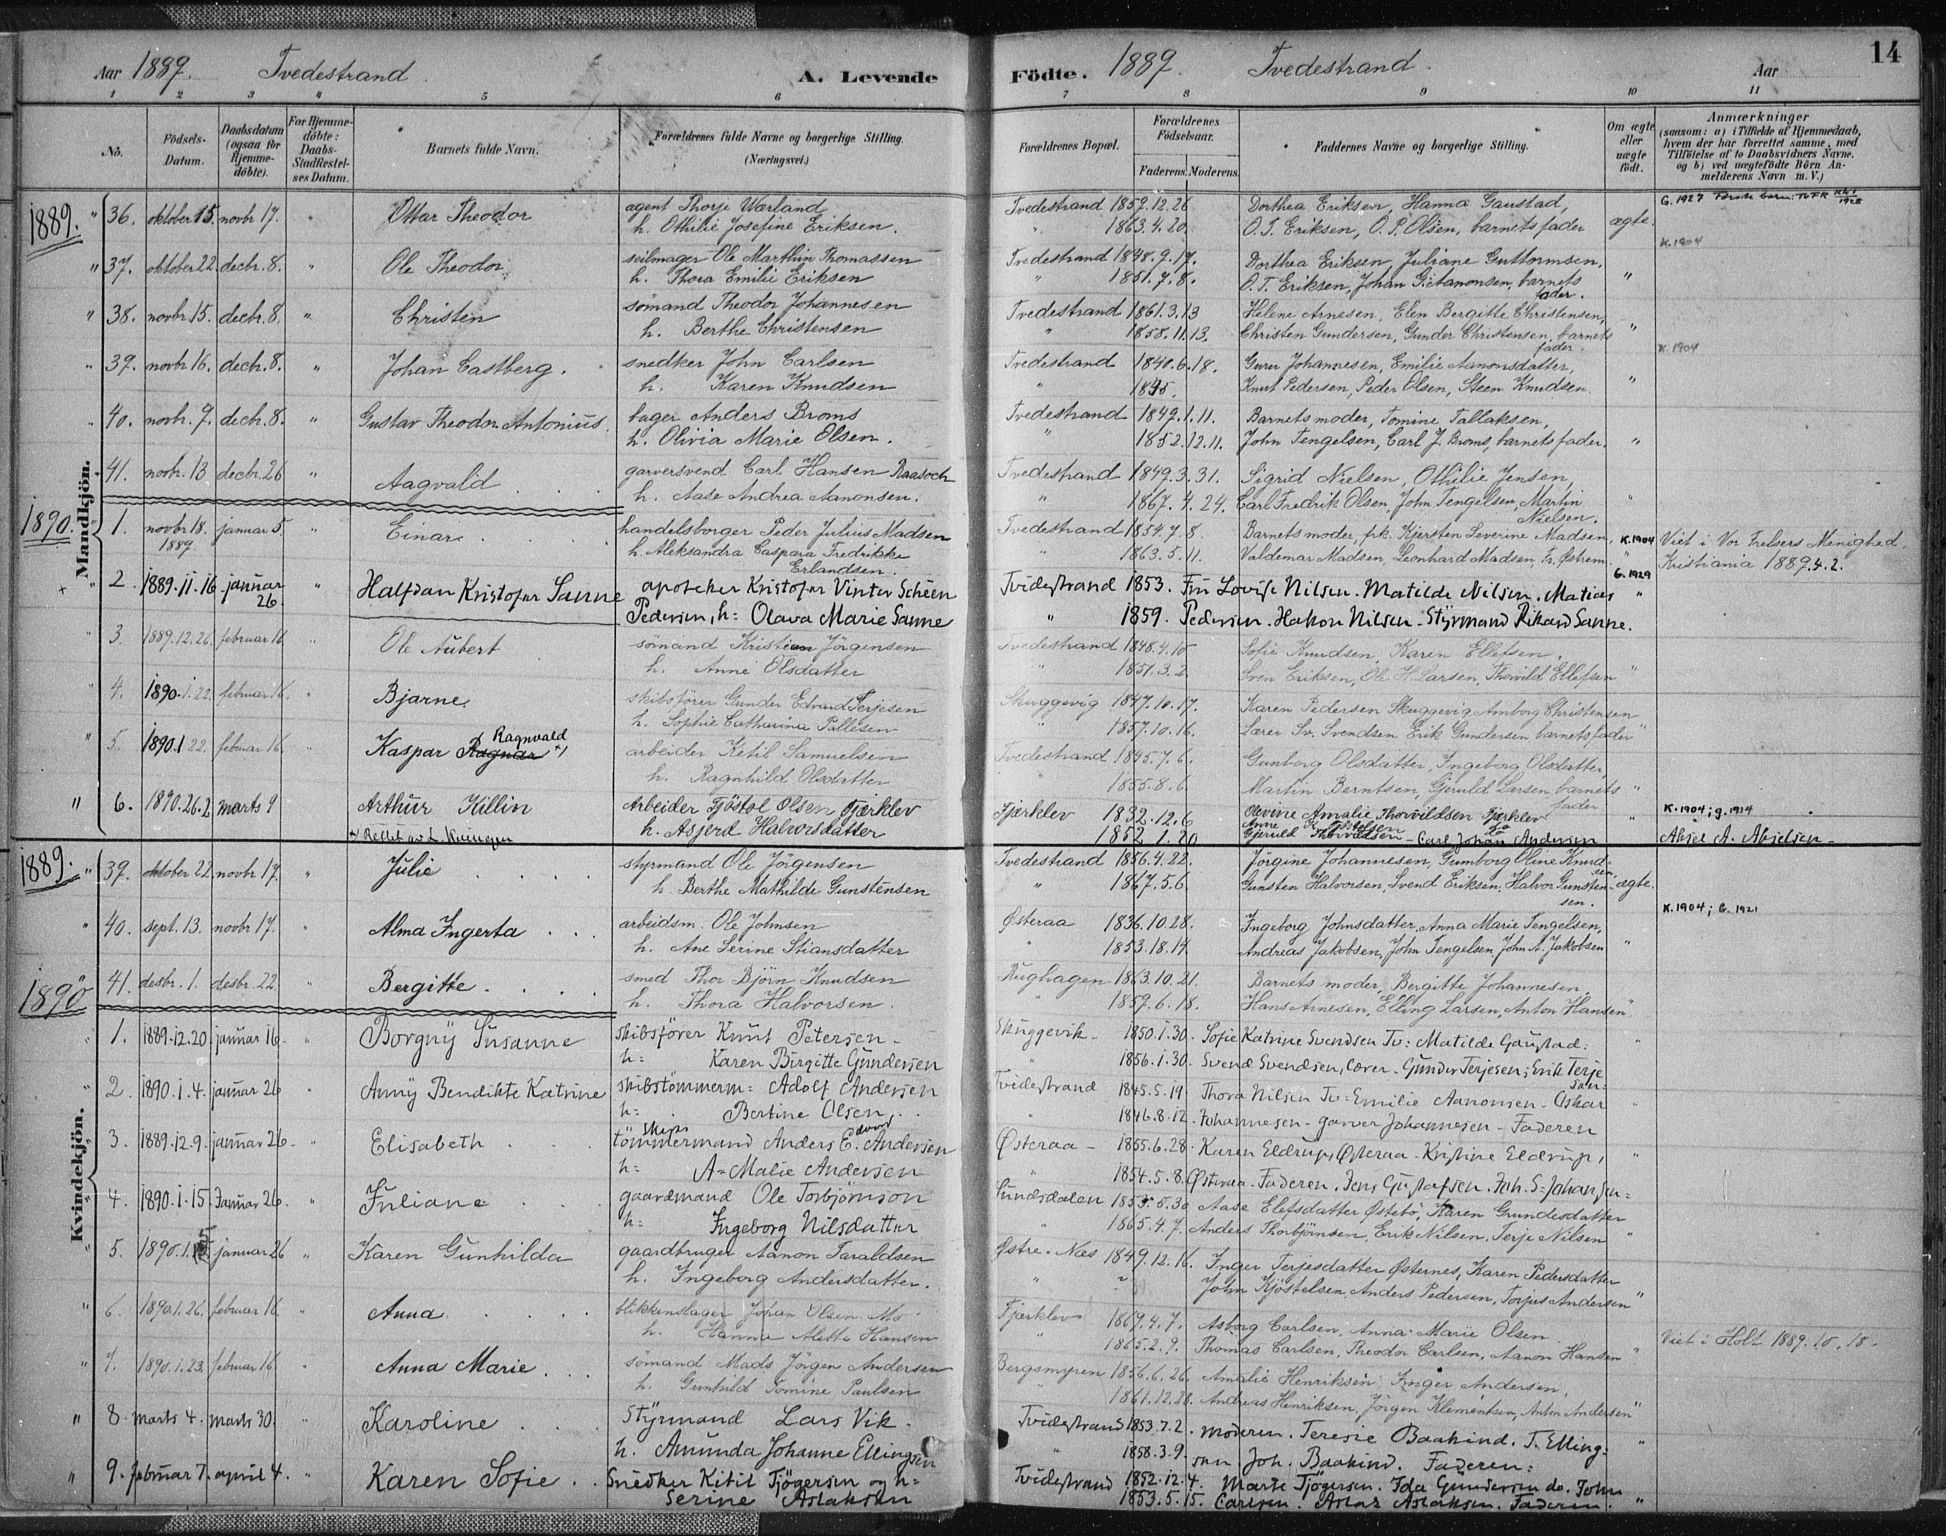 Aar 1889. Tvedestrand. A. Levende Födte. 1889. Tvedestrand. Aar 14
1 2 3 4 5 6 7 8 9 10 11
No. Födsels-Datum. Daabsdatum (ogsaa for Hjemme-döbte). For Hjemme-döbte: Daabs-Stadfæstel-ses Datum. Barnets fulde Navn. Forældrenes fulde Navne og borgerlige Stilling. (Næringsvei.) Forældrenes Bopæl. Forældrenes Födselsaar. Faderens. Moderens. Faddernes Navne og borgerlige Stilling. Om ægte eller uægte födt. Anmærkninger (saasom: a) i Tilfælde af Hjemmedaab, hvem der har forrettet samme, med Tilföielse af to Daabsvidners Navne, og b) ved uægtefödte Börn An-melderens Navn m. V.)
Mandkjön.
1889. " 36. oktober 15. novbr 17. " Ottar Theodor agent Thorje Warland Tvedestrand 1859.12.26 Dorthea Eriksen, Hanna Gaustad, G. 1927
h. Othilie Josefine Eriksen. " 1863.4.20. O. T. Eriksen, O. P. Olsen, barnets fader ægte.
K. 1904
" 37. oktober 22. decbr. 8. " Ole Theodor seilmager Ole Marthin Thomassen Tvedestrand 1848.9.17. Dorthea Eriksen, Juliane Guttormsen,
h. Thora Emilie Eriksen " 1851.7.8. O. T. Eriksen, Johan barnets fader. "
" 38. novbr. 15. decbr. 8. " Christen sömand Theodor Johannesen Tvedestrand 1861.3.13 Helene Arnesen, Elen Bergitte Christensen,
h. Berthe Christensen " 1858.11.13. Christen Gundersen, Gunder Christensen, barnets fader. "
K. 1904
" 39. novbr 16. decbr. 8. " Johan Castberg. snedker John Carlsen Tvedestrand 1840.6.18. Johannesen, Emilie Aanonsdatter,
h. Karen Knudsen " 1845. Knut Pedersen, Peder Olsen, Steen Knudsen. "
" 40. novbr. 9. decbr. 8. " Gustav Theodor Antonius. bager Anders Broms Tvedestrand 1849.1.11. Barnets moder, Tomine Tallaksen,
h. Olivia Marie Olsen. " 1852.12.11. John Tengelsen, Carl J. Broms, barnets fader. "
41. novbr. 13 decbr. 26 " Aagvald garversvend Carl Hansen Raasoch Tvedestrand 1849.3.31. Sigrid Nielsen, Othilie Jensen,
h. Aase Andrea Aanonsen. " 1867.4.24. Carl Fredrik Olsen, John Tengelsen, Martin Nielsen. "
1890. " 1. novbr 18. 1889. januar 5. " Einar handelsborger Peder Julius Madsen Tvedestrand 1854.7.8. Barnets moder, frk. Kjersten Severine Madsen, K. 1904 Viet i Vor Frelsers Menighed
h. Aleksandra Caspara Fredrikke Erlandsen. " 1863.5.11. Valdemar Madsen, Leonhard Madsen, Fr. Östrem. " Kristiania 1889.4.2.
G. 1929
+ 2. 1889.11.16. januar 26. " Halfdan Kristofer Sanne apoteker Kristofer Vinter Scheen Tvidestrand 1853. Frü Lovise Nilsen. Matilde Nilsen. Matias "
Pedersen, h: Olava Marie Sanne " 1859. Pedersen. Hakon Nilsen - Styrmand Rikard Sanne.
" 3. 1889.12.26. februar 16 " Ole Aubert sömand Kristian Jörgensen Tvedestrand 1848.4.10 Sofie Knudsen, Karen Ellefsen,
h. Anne Olsdatter " 1851.3.2. Sven Eriksen, Ole H. Larsen, Thorvild Ellefsen "
" 4. 1890.1.22. februar 16. " Bjarne skibsförer Gunder Edvard Terjesen Skuggevig 1847.10.17. Karen Pedersen Skuggevig, Amborg Christensen
h. Sophie Catharina Pallesen " 1857.10.16. Lærer Sv. Svendsen, Erik Gundersen, barnets fader "
" 5. 1890.1.22. februar 16. " Kaspar Ragnar Ragnvald x) arbeider Ketil Samuelsen Tvedestrand 1845.7.6. Gunborg Olsdatter, Ingeborg Olsdatter,
h. Ragnhild Olsdatter " 1855.8.6. Martin Berntsen, Gjeruld Larsen, barnets fader "
" 6. 1890.26.2 marts 9 Arthur Killin Arbeider Tjöstol Olsen Fjærklev Fjærklev 1832.12.6 Olevine Amalie Thorvildsen Fjærklev " K. 1904; g. 1914
x) Rettet av L. h. Asjerd Halvorsdatter 1852 1.20 Gjeruld Thorvildsen - Carl Johan Andersen Aksel A. Axelsen -
Kvindekjön.
1889. " 39. oktober 22. novbr 17. " Julie styrmand Ole Jörgensen Tvedestrand 1856.4.22. Jörgine Johannesen, Gumborg Oline Knud-sen,
h. Berthe Mathilde Gunstensen " 1867.5.6. Gunsten Halvorsen, Svend Eriksen, Halvor Gunsten-sen. ægte.
K. 1904; G. 1921
" 40. sept. 13. novbr 17. " Alma Ingerta arbeidsm. Ole Johnsen Østeraa 1836.10.28. Ingeborg Johnsdatter, Anna Marie Tengelsen,
h. Ane Serine Stiansdatter " 1853.18.14. Andreas Jakobsen, John Tengelsen, John A. Jakobsen "
" 41. desbr. 1. desbr. 22. " Bergitte smed Thor Björn Knudsen Rughagen 1863.10.21. Barnets moder, Bergitte Johannesen,
h. Thora Halvorsen. " 1859.6.18. Hans Arnesen, Elling Larsen, Anton Hansen "
1890 " 1. 1889.12.20. januar 16 " Borgny Susanne skibsförer Knut Petersen Skuggevik 1850.1.30. Sofie Katrine Svendsen Tv: Matilde Gaustad: "
h: Karen Birgitte Gundersen 1856.1.30. Svend Svendsen, Lærer - Gunder Terjesen; Erik Terje
" 2. 1890.1.4. januar 26 " Anny Bendikte Katrine skibstömmerm: Adolf Andersen Tvidestrand 1845.5.19. Thora Nilsen Tv: Emilie Aanonsen - Oskar "
h: Bertine Olsen. " 1846.8.12. Johannesen - garver Johannesen - Faderen
3. 1889.12.9. januar 26 - " Elisabeth skibs tömmermand Anders Edvard Andersen Østeraa - 1855.6.28. Karen Eldrup, Østeraa - Kristine Eldrup, "
h: A-Malie Andersen 1854.5.8. Østeraa - Faderen. Jens Gustafsen. Joh. S. Johansen =
4. 1890.1.15. Januar 26. " Juliane gaardmand Ole Torbjörnson Sundsdalen 1853.5.30 Aase Elefsdatter Østebö, Karen Grundesdatter
h: Ingeborg Nilsdatter " 1865.4.7. Anders Thorbjönsen, Erik Nilsen, Terje Nilsen "
" 5. 1890.1. januar 26 " Karen Gunhilda gaardbruger Aanon Taraldsen Østre-Næs 1849.12.16. Inger Terjesdatter Østernes, Karen Pedersdatter
h. Ingeborg Andersdatter. " " John Kjöstelsen, Anders Pedersen, Torjus Andersen "
" 6. 1890.1.26. februar 16 " Anna blikkenslager Johan Olsen Mo Fjærklev 1869.4.7. Asborg Carlsen, Anna Marie Olsen Viet i Holt 1889.10.18.
h. Hanna Alette Hansen " 1865.2.9. Thomas Carlsen, Theodor Carlsen, Aanon Hansen "
" 7. 1890.1.23. februar 16 " Anna Marie sömand Mads Jörgen Andersen Bergsmyren 1856.6.26. Amalie Henriksen, Inger Andersen,
h. Gunhild Tomine Paulsen " 1861.12.28. Andreas Henriksen, Jörgen Klementsen, Anton Andersen "
" 8. marts 4. marts 30. " Karoline Styrmand Lars Vik. Tvidestrand 1853.7.2. moderen. Teresie Baakind. T. Elling- "
h. Amunda Johanne Ellingsen " 1858.3.9. sen Joh. Baakind. Faderen:
" 9. februar 7. april 4. " Karen Sofie. Snedker Kitil Tjögersen og h= Tvidestrand 1852.12.4. Marte Tjögersen. Ida Gundersen do. John
Serine Aslaksen 1853.5.15. Carlsen. Aslak Aslaksen. Faderen. "